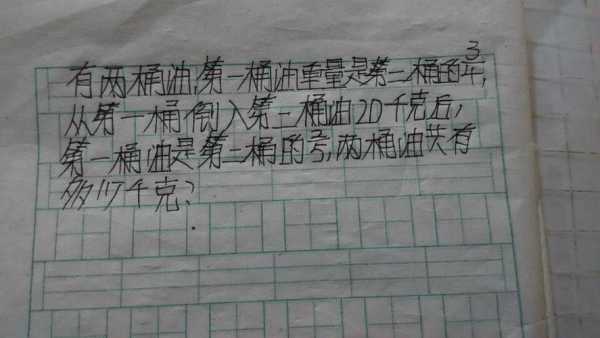 有两桶油,第一桶油重量是第二桶的
从第一桶倒入第二桶油20千克后,
第一桶油是第二桶的,两桶油共有
多少千克?